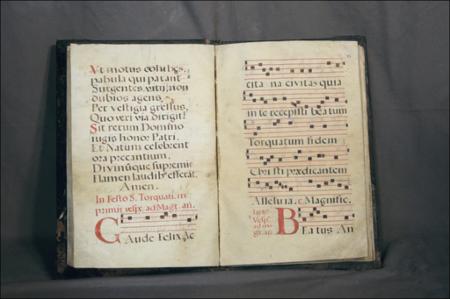 Vt motus cordibus,
pabula qui patant
Surgentes, viri, non
dubios agens,
Per vestigia gressus,
Quo veri via dirigit?
Sit rerum Domino
iugis honor Patri,
Et Natum celebrent
ora precantium,
Divinúque supremis
Flamen laudibus efferat.
Amen.
In Festo S. Torquati, in
primis vesp. ad Magt. an.
Gaude Felix, Ac
cita na civitas quia
in te recepisti beatum
Torquatum fidem
Christi prædicantem
Alleluia. c. Magnific.
Vesp.
ad
Beatus An